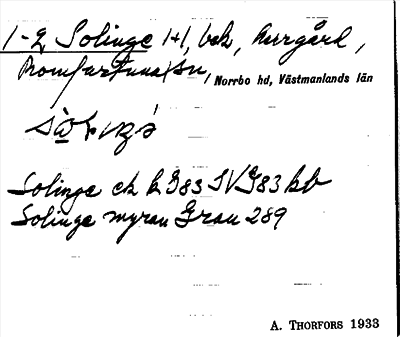 1-2 Solinge 1+1, bek, herrgård,
Romfartuna sn, Norrbo hd, Västmanlands län
Solinge ek k G83 SV G83 bb
Solinge myran Gran 289
A. THORFORS 1933